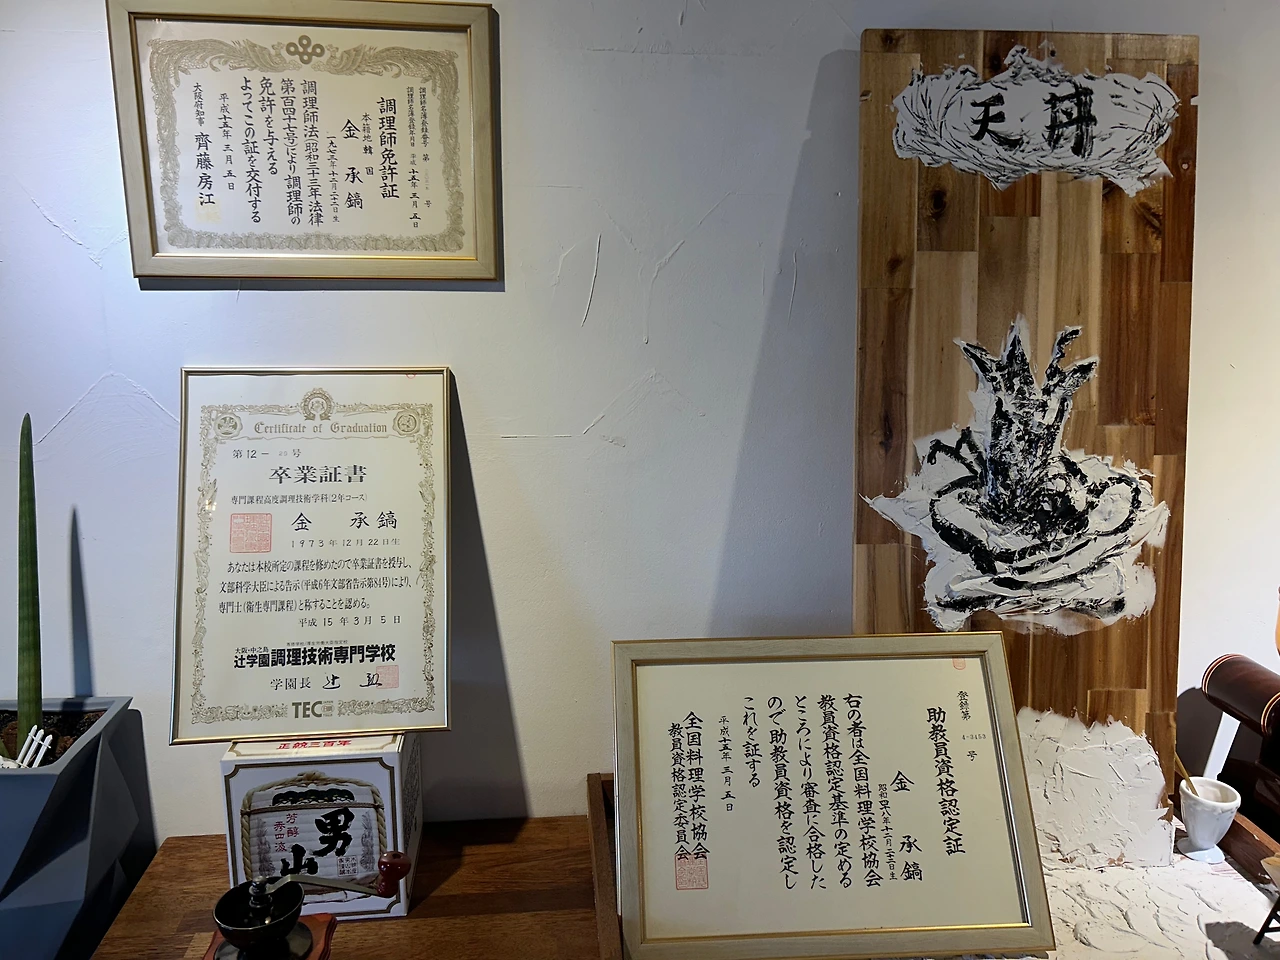 調理師名簿登録番号 第 号
調理師名簿登録年月日 平成十五年三月五日
調理師免許証
本籍地 韓国
金承鎬
一九七三年十二月二十二日生
調理師法(昭和三十三年法律
第百四十七号)により調理師の
免許を与える
よってこの証を交付する
平成十五年三月五日
大阪府知事 齊藤房江
Certificate of Graduation
第12- 号
卒業証書
専門課程高度調理技術学科(2年コース)
金 承鎬
1973年12月22日生
あなたは本校所定の課程を修めたので卒業証書を授与し、
文部科学大臣による告示(平成6年文部省告示第84号)により、
専門士(衛生専門課程)と称することを認める。
平成15年3月5日
大阪・中之島
辻学園調理技術専門学校
学園長 辻
TEC
正統三百年
芳醇
男山
登録第 4-3453 号
助教員資格認定証
金 承鎬
昭和四八年十二月二十二日生
右の者は全国料理学校協会
教員資格認定基準の定める
ところにより審査に合格した
ので助教員資格を認定し
これを証する
平成十五年三月五日
全国料理学校協会
教員資格認定委員会
天丼